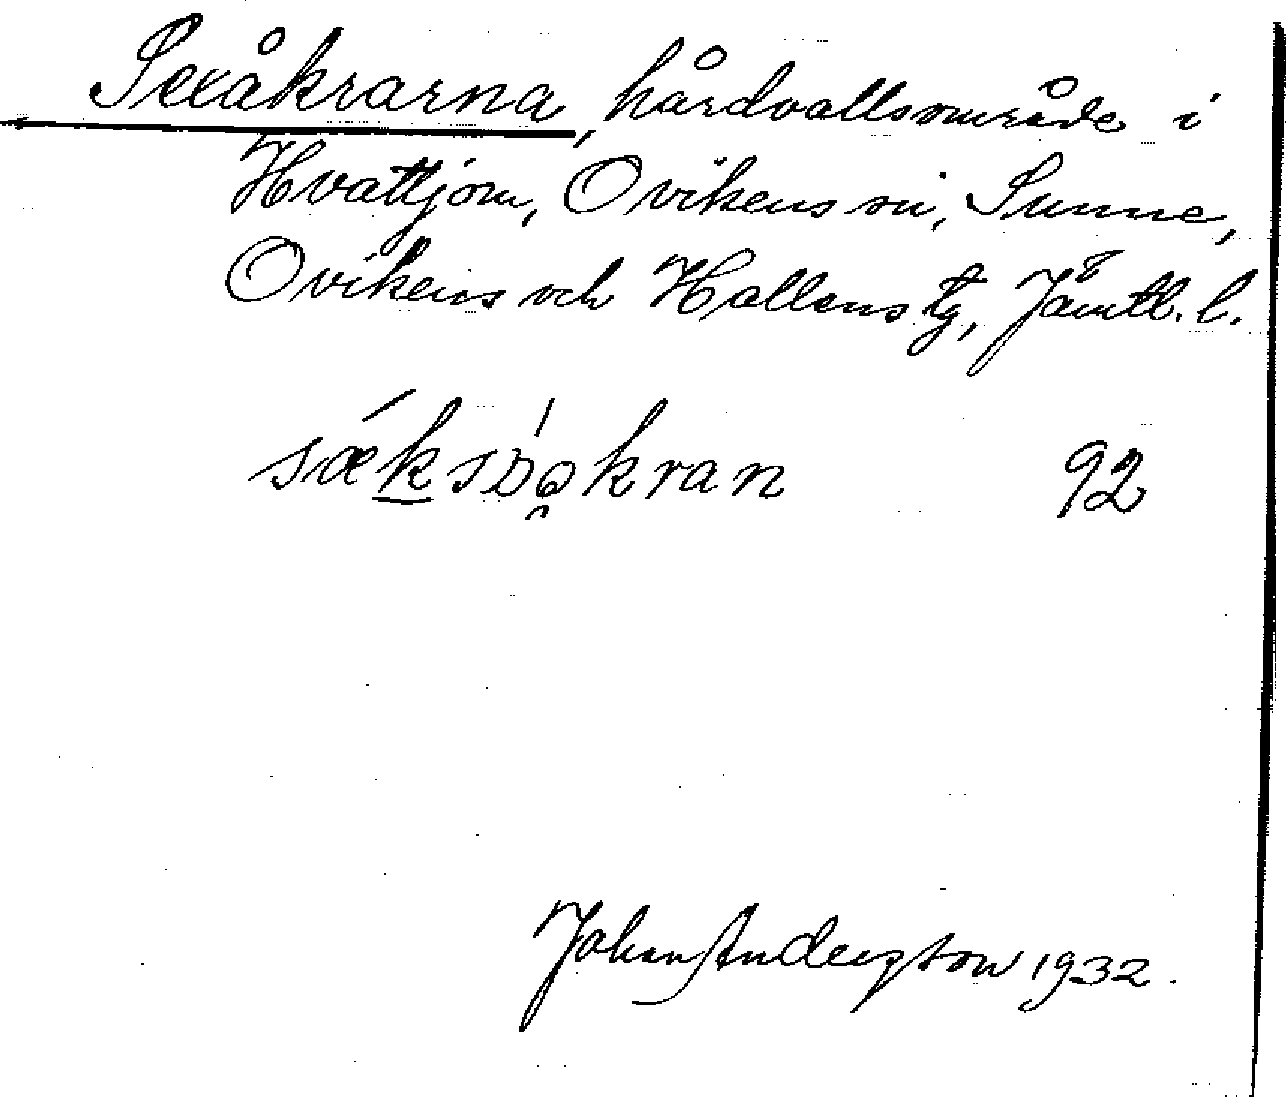 Sexåkrarna, hårdvallsområde i
Hvattjom, Ovikens sn, Sunne,
Ovikens och Hallens tg, Jämtl. l.
sæksɒkran 92
Johan Andersson 1932.